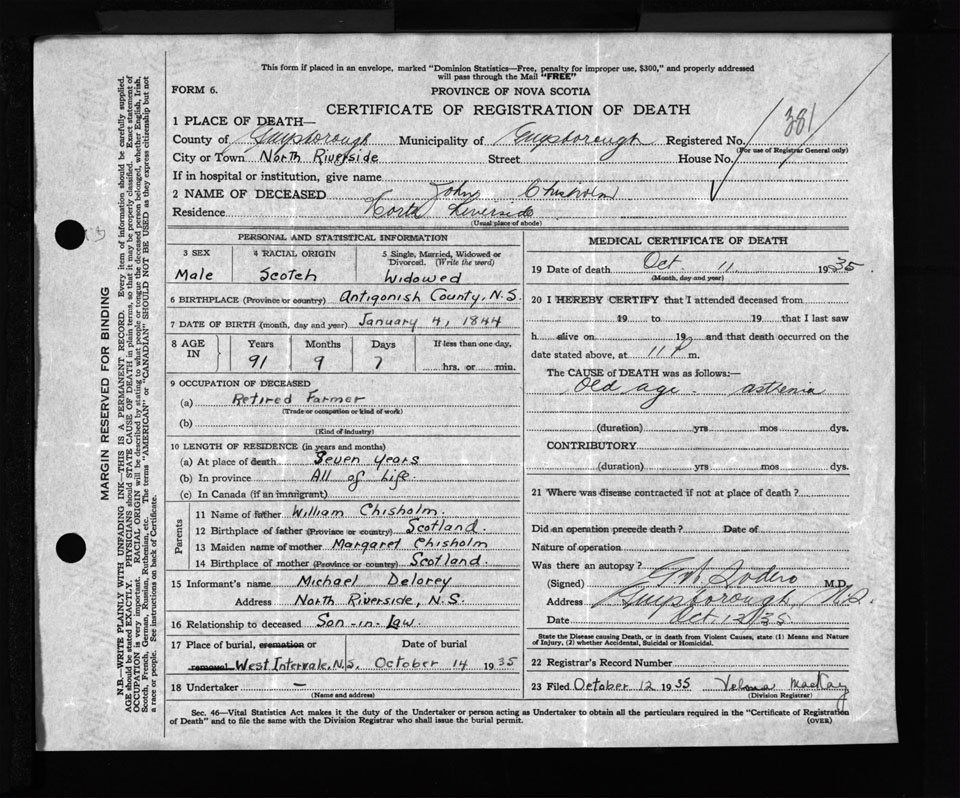 This form if placed in an envelope, marked "Dominion Statistics—Free, penalty for improper use, $300," and properly addressed
will pass through the Mail "FREE"
FORM 6.
PROVINCE OF NOVA SCOTIA
CERTIFICATE OF REGISTRATION OF DEATH
1 PLACE OF DEATH—
381
County of Guysborough Municipality of Guysborough Registered No.
(For use of Registrar General only)
City or Town North Riverside Street House No.
If in hospital or institution, give name
2 NAME OF DECEASED John Chisholm
Residence North Riverside
(Usual place of abode)
PERSONAL AND STATISTICAL INFORMATION
3 SEX 4 RACIAL ORIGIN 5 Single, Married, Widowed or Divorced. (Write the word)
Male Scotch Widowed
6 BIRTHPLACE (Province or country) Antigonish County, N.S.
7 DATE OF BIRTH (month, day and year) January 4, 1844
8 AGE IN Years Months Days If less than one day,
91 9 7 hrs. or min.
9 OCCUPATION OF DECEASED
(a) Retired Farmer
(Trade or occupation or kind of work)
(b)
(Kind of industry)
10 LENGTH OF RESIDENCE (in years and months)
(a) At place of death Seven years
(b) In province All of Life.
(c) In Canada (if an immigrant)
Parents
11 Name of father William Chisholm.
12 Birthplace of father (Province or country) Scotland.
13 Maiden name of mother Margaret Chisholm
14 Birthplace of mother (Province or country) Scotland.
15 Informant's name Michael Delorey
Address North Riverside, N.S.
16 Relationship to deceased Son-in-Law.
17 Place of burial, cremation or Date of burial
removal West Intervale, N.S. October 14 1935
18 Undertaker —
(Name and address)
MEDICAL CERTIFICATE OF DEATH
19 Date of death Oct. 11 1935
(Month, day and year)
20 I HEREBY CERTIFY that I attended deceased from
19 to 19 that I last saw
h alive on 19 and that death occurred on the
date stated above, at 11 P m.
The CAUSE of DEATH was as follows:—
Old age - asthenia
(duration) yrs mos dys.
CONTRIBUTORY
(duration) yrs mos dys.
21 Where was disease contracted if not at place of death?
Did an operation precede death? Date of
Nature of operation
Was there an autopsy?
(Signed) M.D.
Address Guysborough, N.S.
Date Oct 12/35
State the Disease causing Death, or in death from Violent Causes, state (1) Means and Nature
of Injury, (2) whether Accidental, Suicidal or Homicidal.
22 Registrar's Record Number
23 Filed October 12 1935 Velma MacKay
(Division Registrar)
Sec. 46—Vital Statistics Act makes it the duty of the Undertaker or person acting as Undertaker to obtain all the particulars required in the "Certificate of Registration
of Death" and to file the same with the Division Registrar who shall issue the burial permit.
(OVER)
MARGIN RESERVED FOR BINDING
N.B.—WRITE PLAINLY WITH UNFADING INK—THIS IS A PERMANENT RECORD. Every item of information should be carefully supplied.
AGE should be stated EXACTLY. PHYSICIANS should STATE CAUSE OF DEATH in plain terms, so that it may be properly classified. Exact statement of
OCCUPATION is very important. RACIAL ORIGIN will be described by stating to what people or tongue the deceased person belonged, whether English, Irish,
Scotch, French, German, Russian, Ruthenian, etc. The terms "AMERICAN" or "CANADIAN" SHOULD NOT BE USED as they express citizenship but not
a race or people. See instructions on back of Certificate.